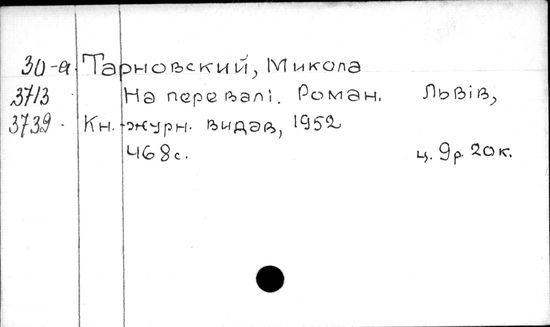 30-а Тарновский, Микола
3713 На перевалі. Роман. Львів,
3739. Кн.-журн. видав, 1952
468с. ц. 9р. 20к.